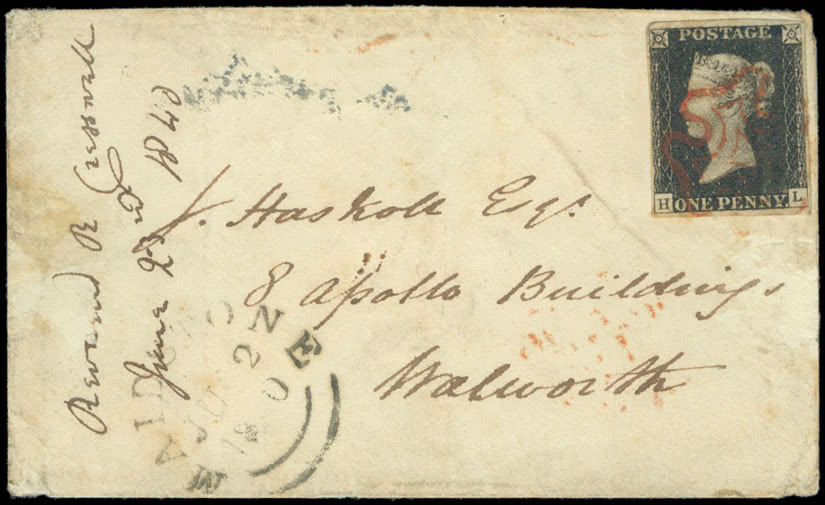 POSTAGE
H ONE PENNY. L
J. Haskoll Esqr.
8 Apollo Buildings
Walworth
Reverend R Cresswell
June 23rd 1840
MAIDSTONE
JU 2
1840